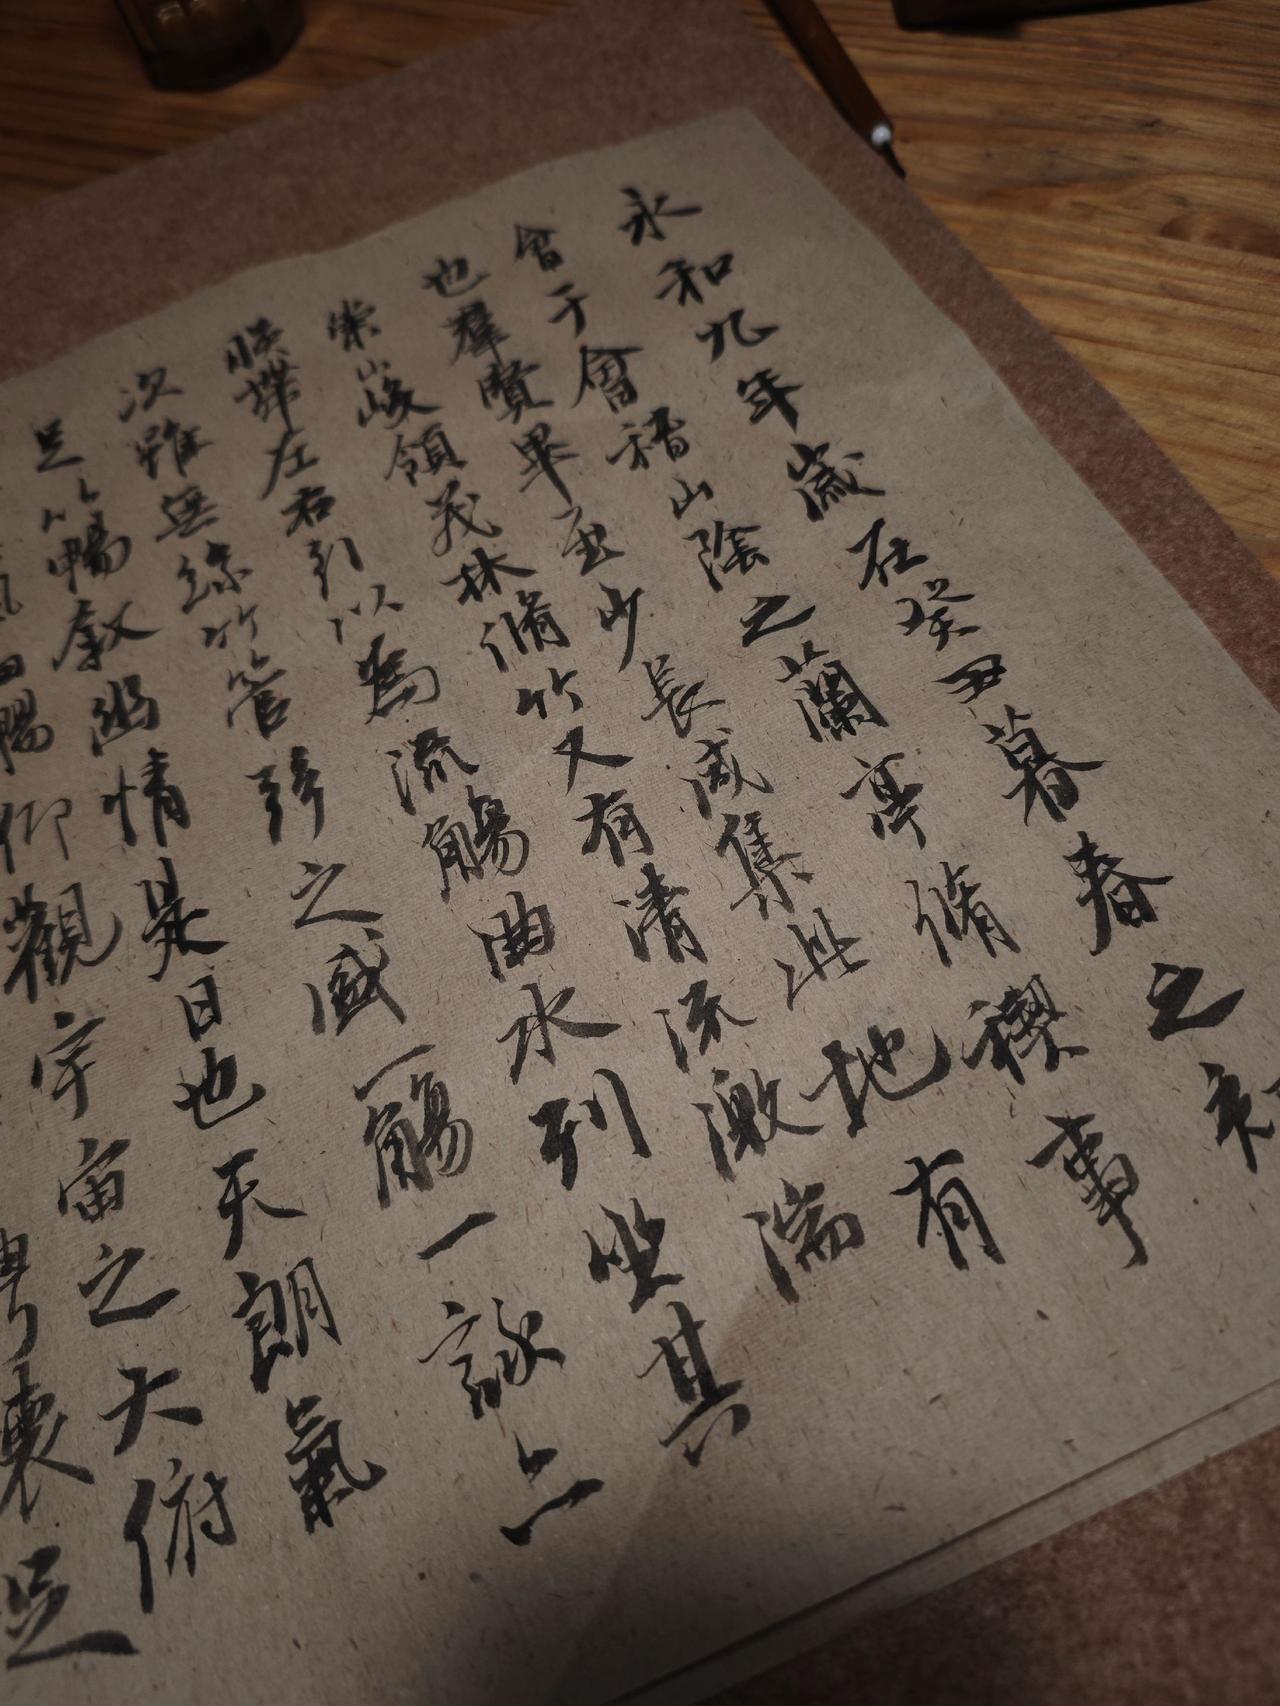 永和九年歲在癸丑暮春之初
會于會稽山陰之蘭亭脩禊事
也羣賢畢至少長咸集此地有
崇山峻領茂林脩竹又有清流激湍
暎帶左右引以為流觴曲水列坐其
次雖無絲竹管弦之盛一觴一詠亦
足以暢敘幽情是日也天朗氣
和暢仰觀宇宙之大俯
騁懷足